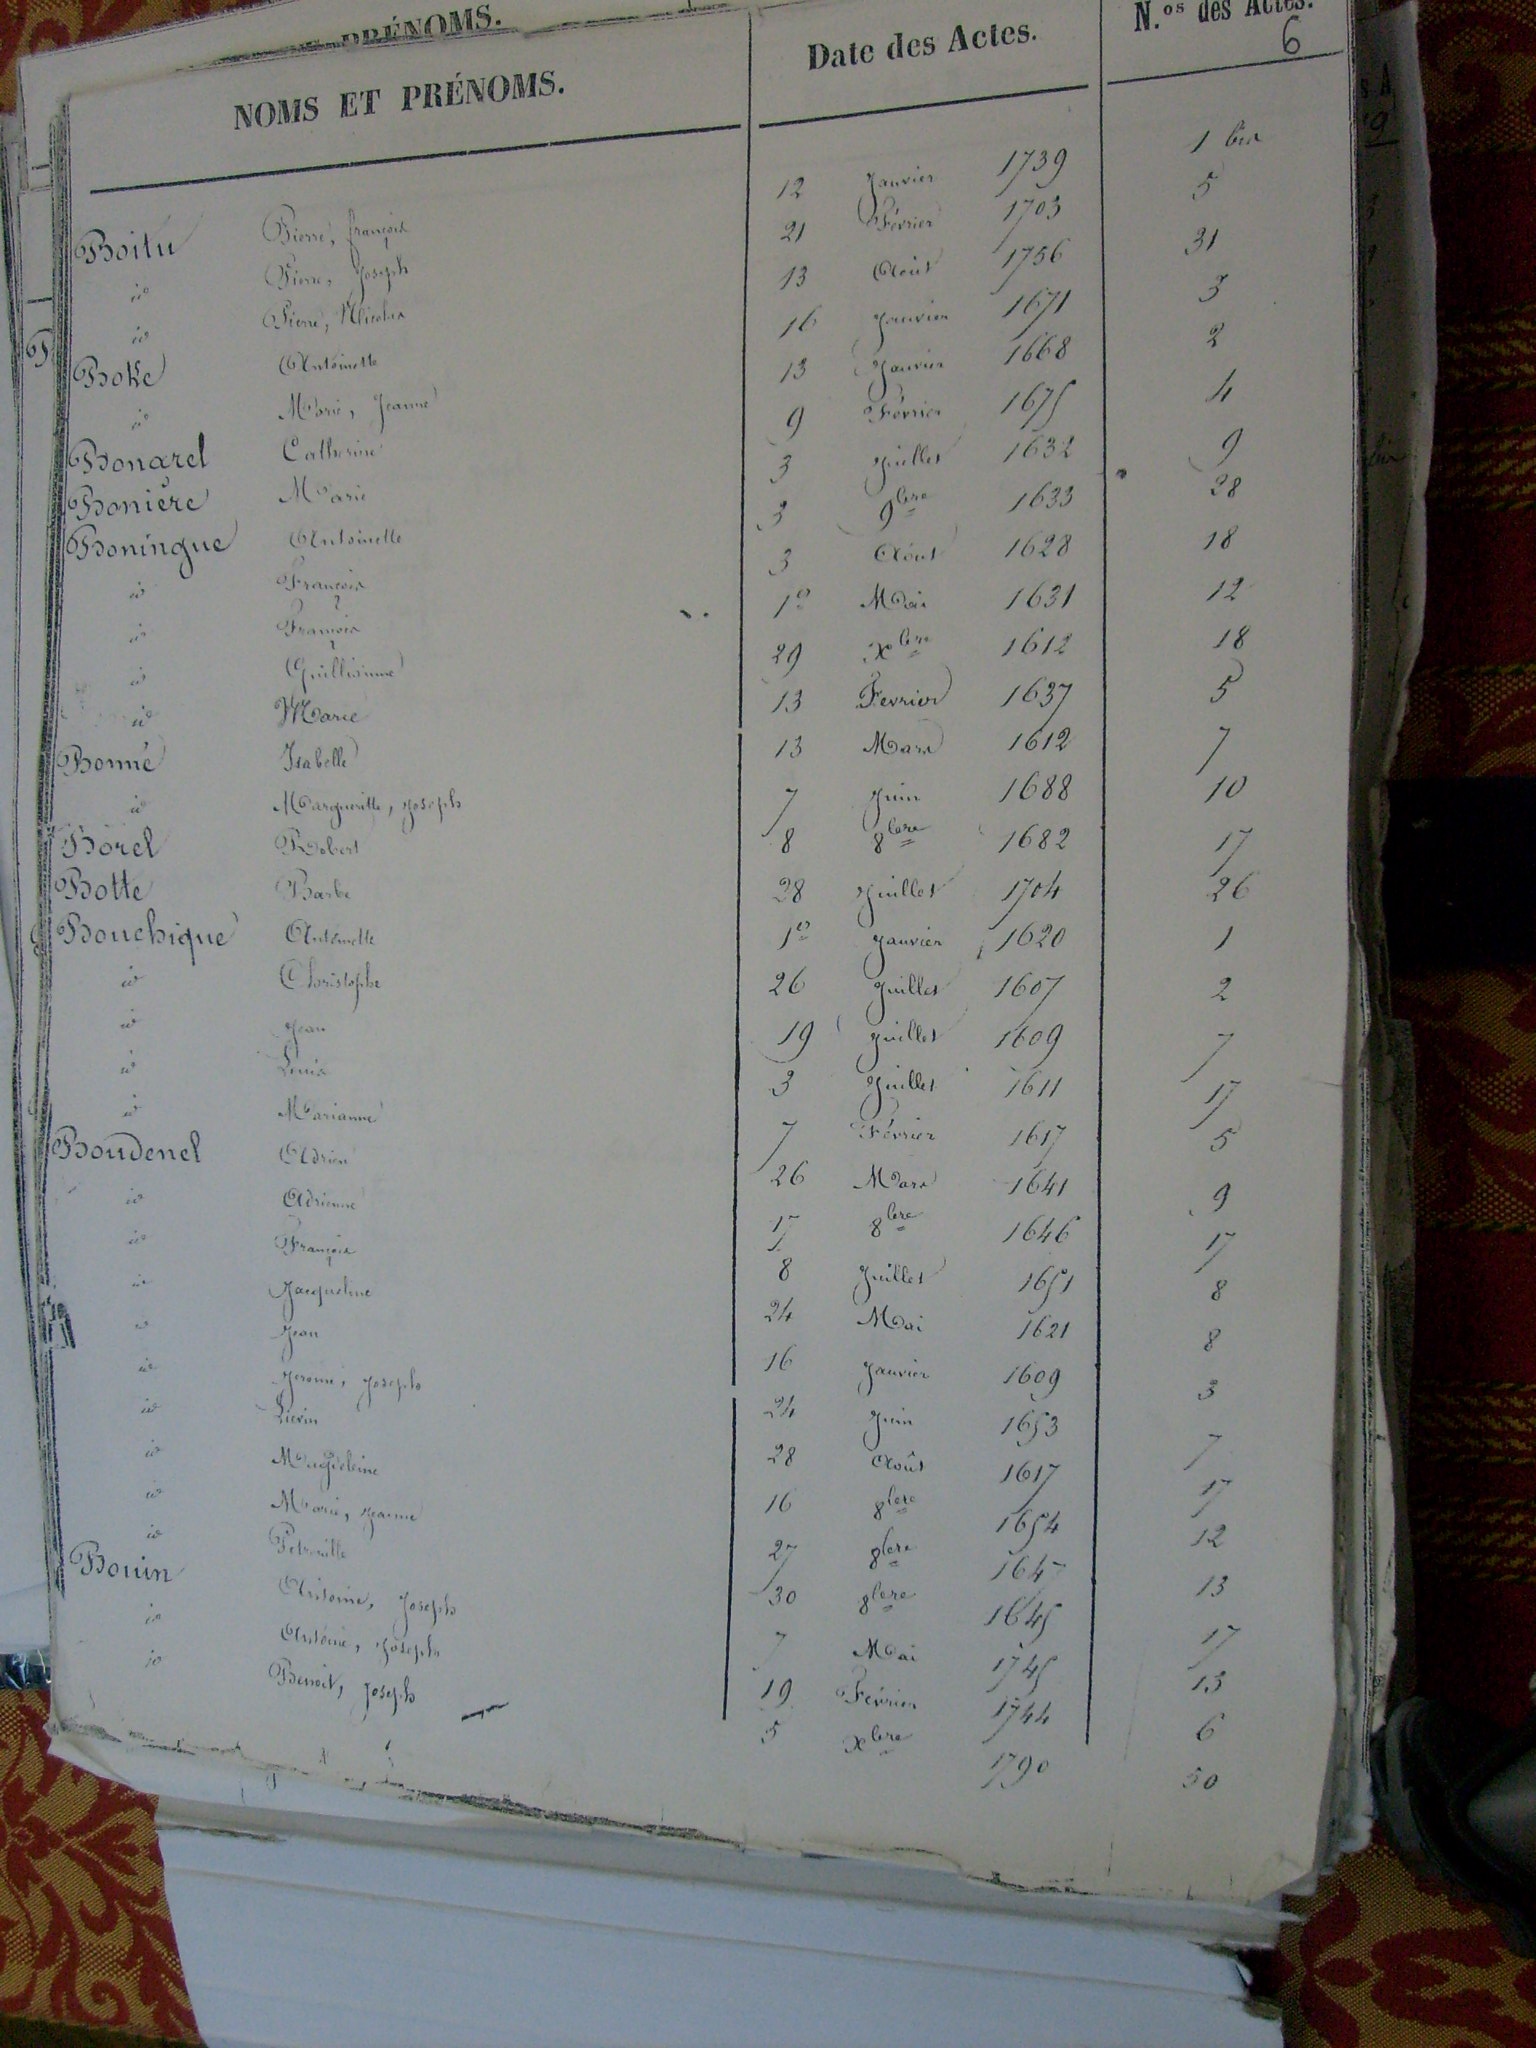 PRÉNOMS.
NOMS ET PRÉNOMS. Date des Actes. N.os des Actes.
6
Boitu Pierre, François 12 Janvier 1739 1 bis
id Pierre, Joseph 21 Février 1703 5
id Pierre, Nicolas 13 Août 1756 31
Boke Antoinette 16 Janvier 1671 3
id Marie, Jeanne 13 Janvier 1668 2
Bonarel Catherine 9 Février 1675 4
Bonière Marie 3 Juillet 1632 9
Boningue Antoinette 3 9bre 1633 28
id François 3 Août 1628 18
id François 1er Mai 1631 12
id 29 Xbre 1612 18
id Marie 13 Fevrier 1637 5
Bonné Isabelle 13 Mars 1612 7
id Marguerite, Joseph 7 Juin 1688 10
Borel Robert 8 8bre 1682 17
Botte Barbe 28 Juillet 1704 26
Bouchique Antoinette 1er Janvier 1620 1
id Christophe 26 Juillet 1607 2
id Jean 19 Juillet 1609 7
id Louis 3 Juillet 1611 17
id Marianne 7 Février 1617 5
Boudenel Adrien 26 Mars 1641 9
id Adrienne 17 8bre 1646 17
id François 8 Juillet 1651 8
id Jacqueline 24 Mai 1621 8
id Jean 16 Janvier 1609 3
id Jerome, Joseph 24 Juin 1653 7
id Lievin 28 Août 1617 17
id Magdeleine 16 8bre 1654 12
id Marie, Jeanne 27 8bre 1647 13
id Petronille 30 8bre 1645 17
Bouin Antoine, Joseph 7 Mai 1745 13
id Antoine, Joseph 19 Février 1744 6
id Benoit, Joseph 5 Xbre 1790 50